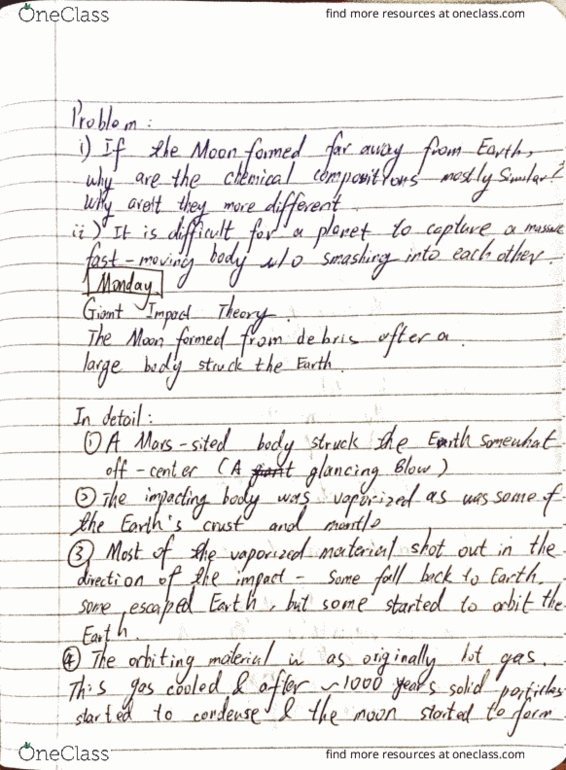 OneClass
find more resources at oneclass.com
Problem :
i) If the Moon formed far away from Earth,
why are the chemical compositions mostly similar?
Why aren't they more different.
ii) It is difficult for a planet to capture a massive
fast-moving body w/o smashing into each other.
Monday
Giant Impact Theory.
The Moon formed from debris after a
large body struck the Earth.
In detail :
① A Mars-sited body struck the Earth somewhat
off-center (A glancing Blow)
② The impacting body was vaporized as was some of
the Earth's crust and mantle
③ Most of the vaporized material shot out in the
direction of the impact - some fall back to Earth.
some escaped Earth, but some started to orbit the
Earth.
④ The orbiting material is as originally hot gas.
This gas cooled & after ~1000 years solid particles
started to condense & the moon started to form
OneClass
find more resources at oneclass.com